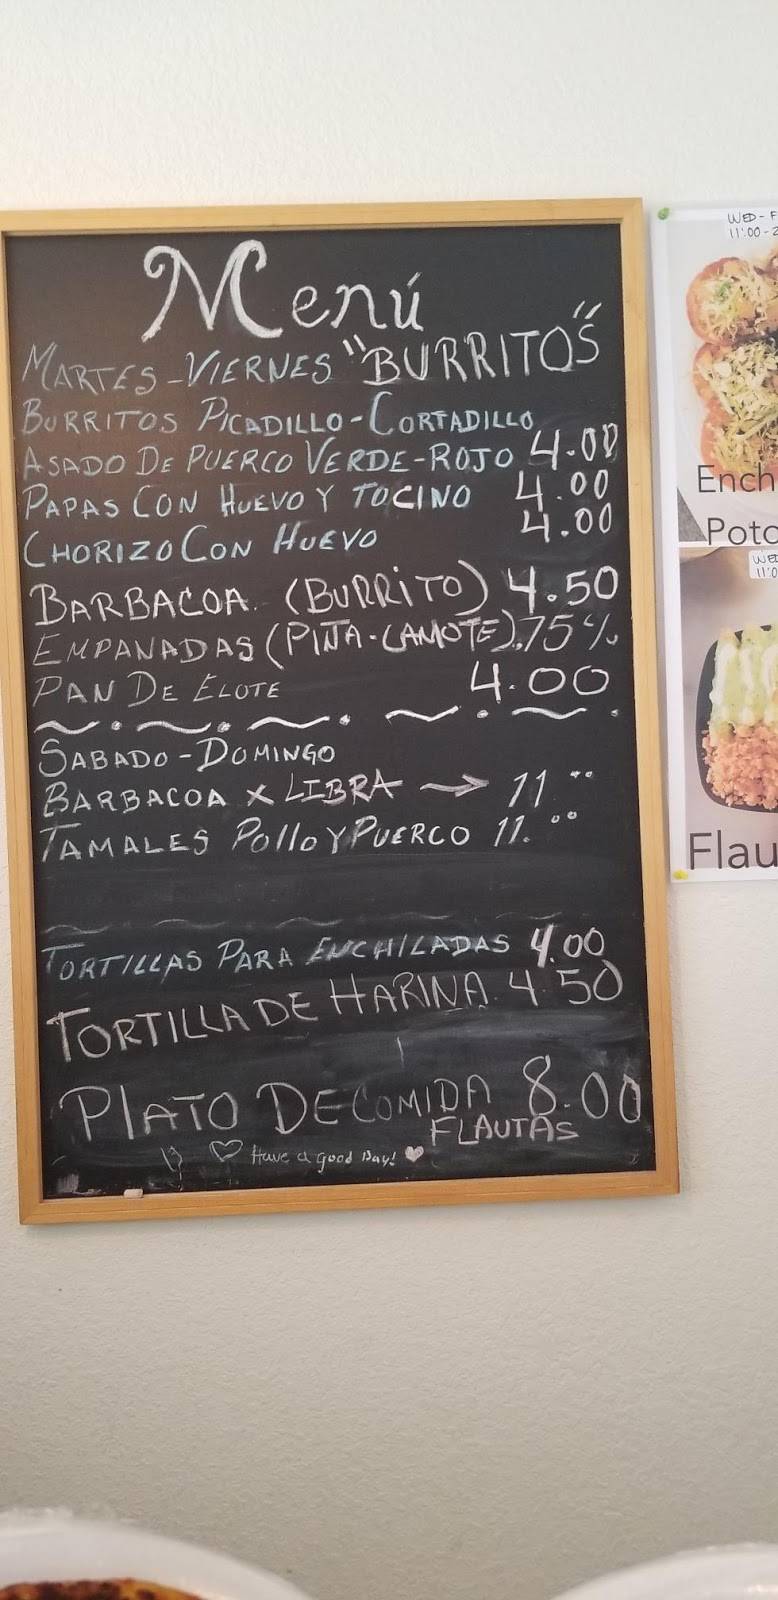 Menú
MARTES-VIERNES "BURRITOS"
BURRITOS PICADILLO-CORTADILLO
ASADO DE PUERCO VERDE-ROJO 4.00
PAPAS CON HUEVO Y TOCINO 4.00
CHORIZO CON HUEVO 4.00
BARBACOA (BURRITO) 4.50
EMPANADAS (PIÑA-CAMOTE) .75%
PAN DE ELOTE 4.00
SABADO-DOMINGO
BARBACOA X LIBRA → 11.00
TAMALES POLLO Y PUERCO 11.00
TORTILLAS PARA ENCHILADAS 4.00
TORTILLA DE HARINA 4.50
PLATO DE COMIDA 8.00
FLAUTAS
Have a good Day!
WED-F
11:00-2
Ench
Poto
WED
11:0
Flau